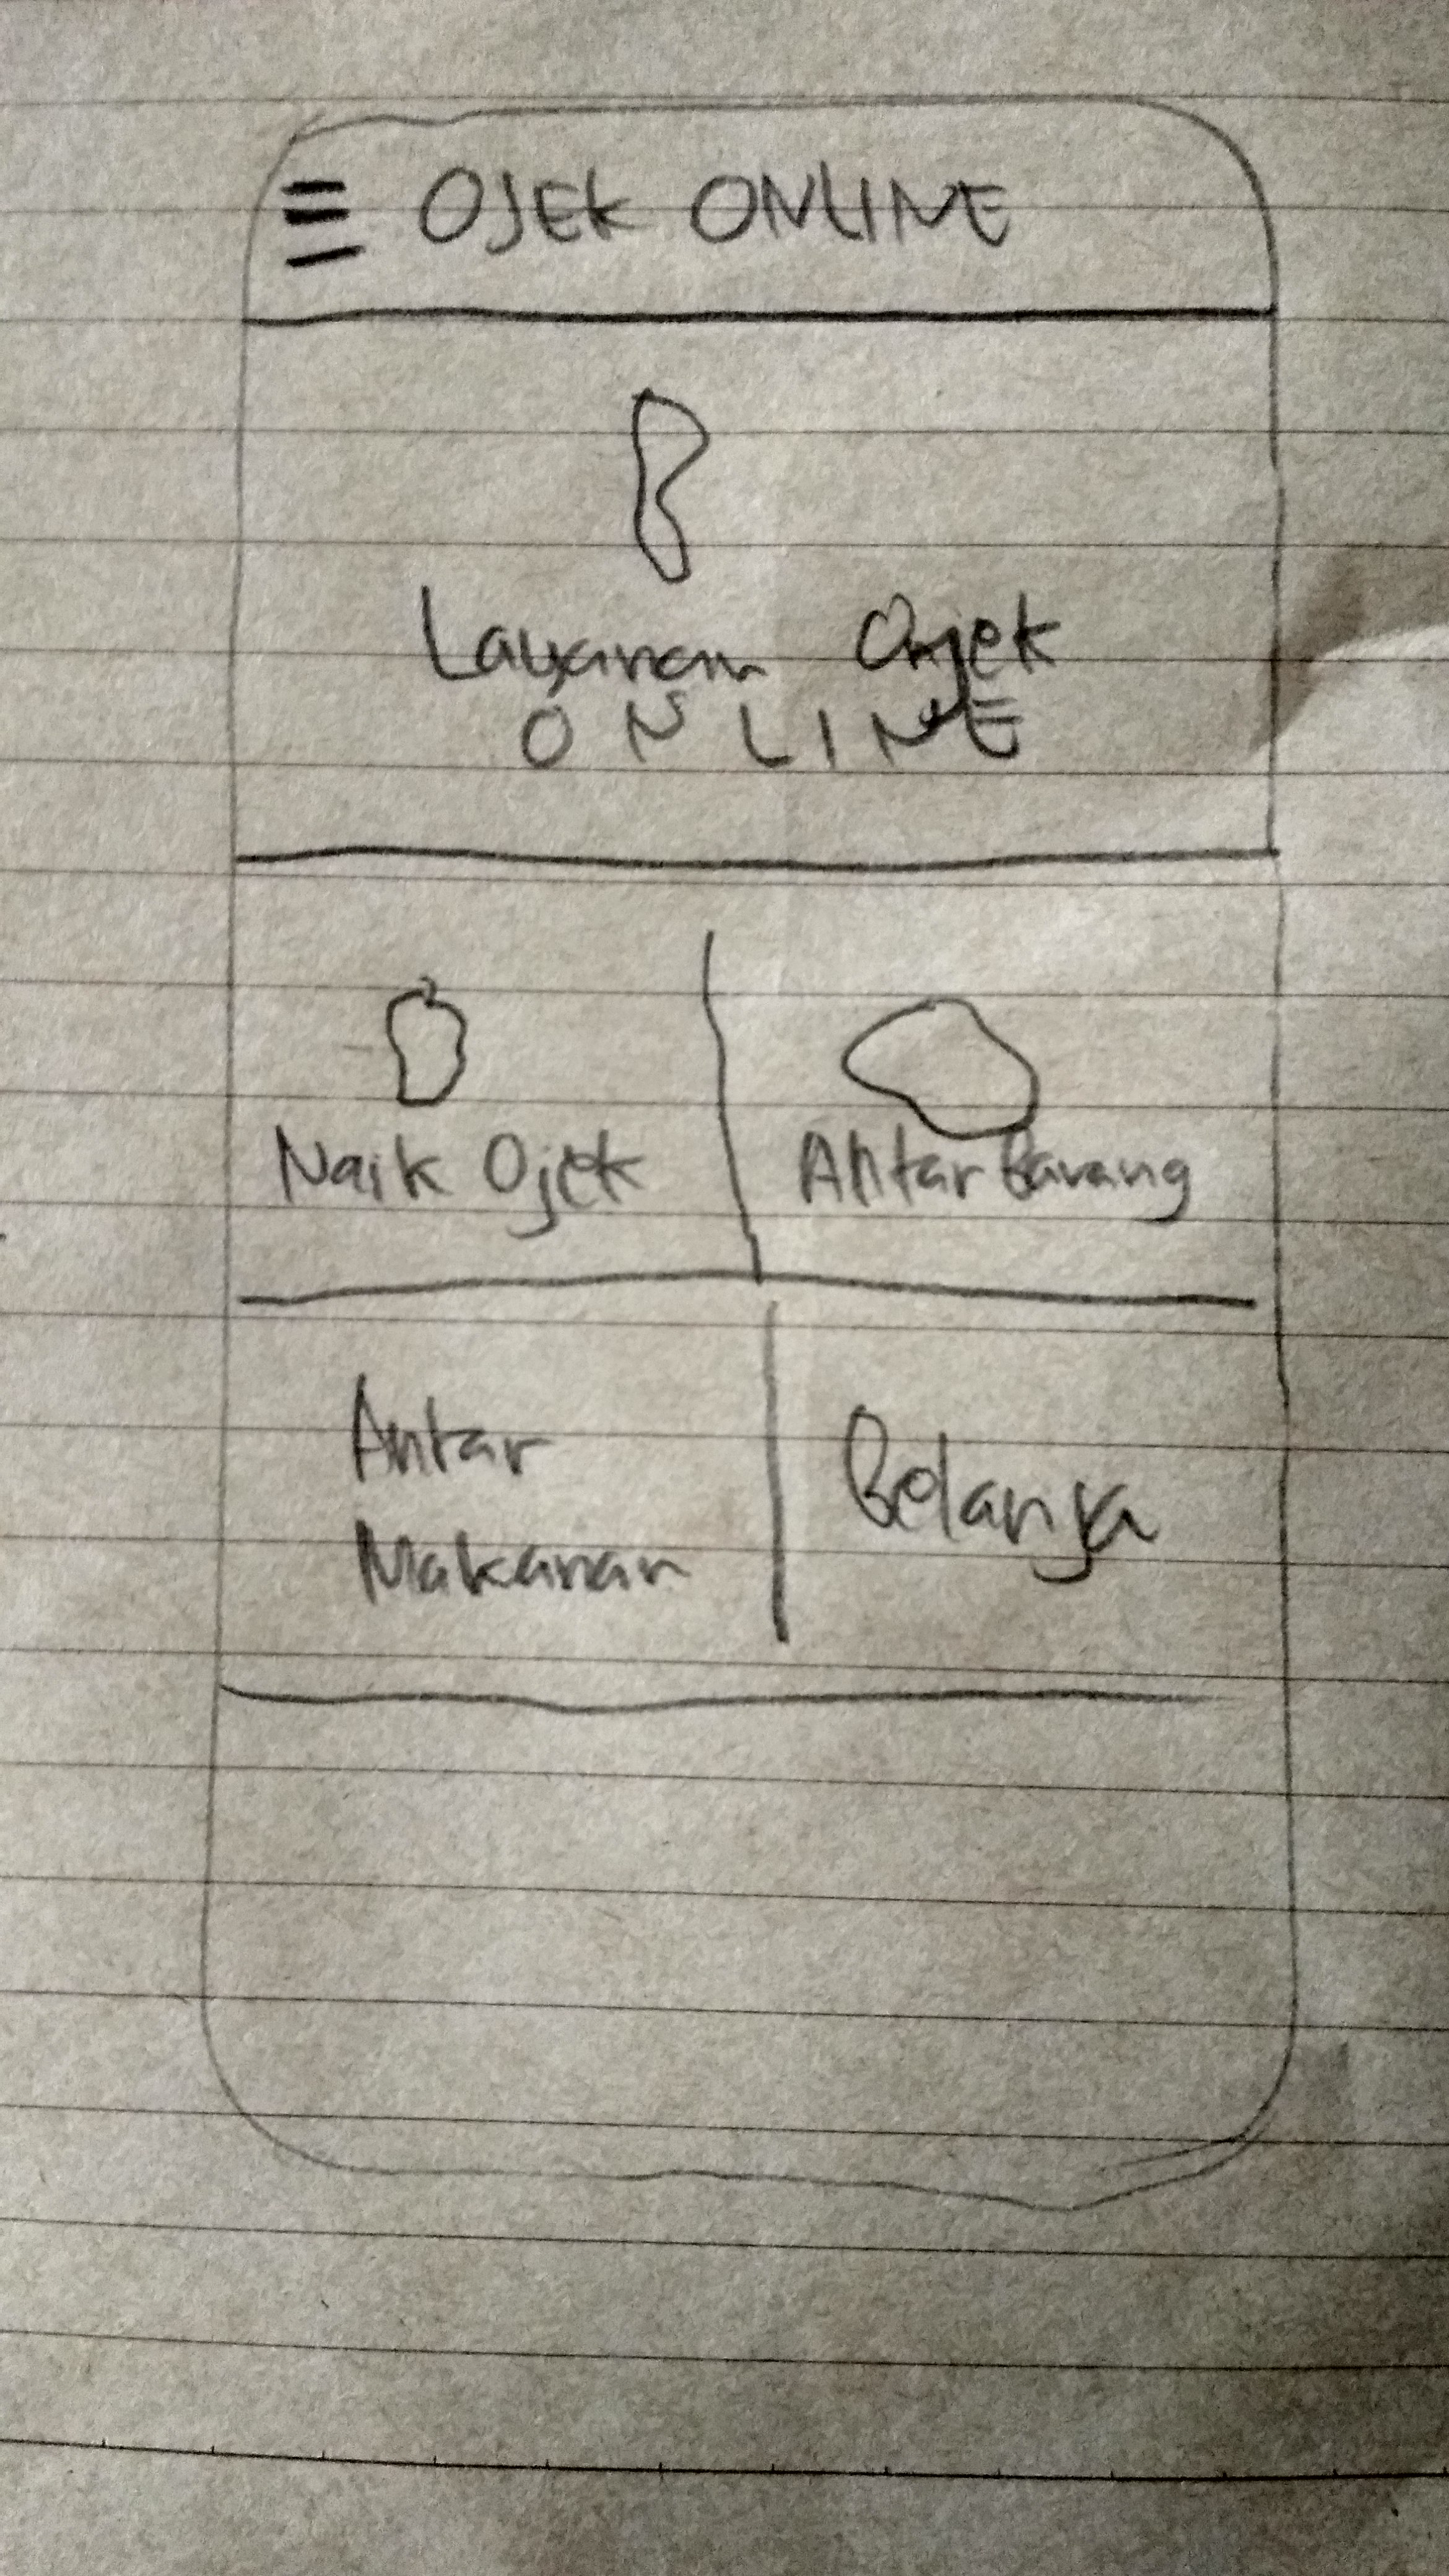 OJEK ONLINE
Layanan Ojek
ONLINE
Naik Ojek
Antar Barang
Antar
Makanan
Belanja